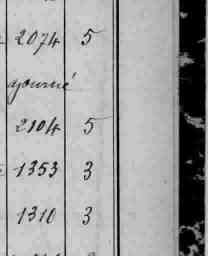 2074 5
ajourné
2104 5
1353 3
1310 3